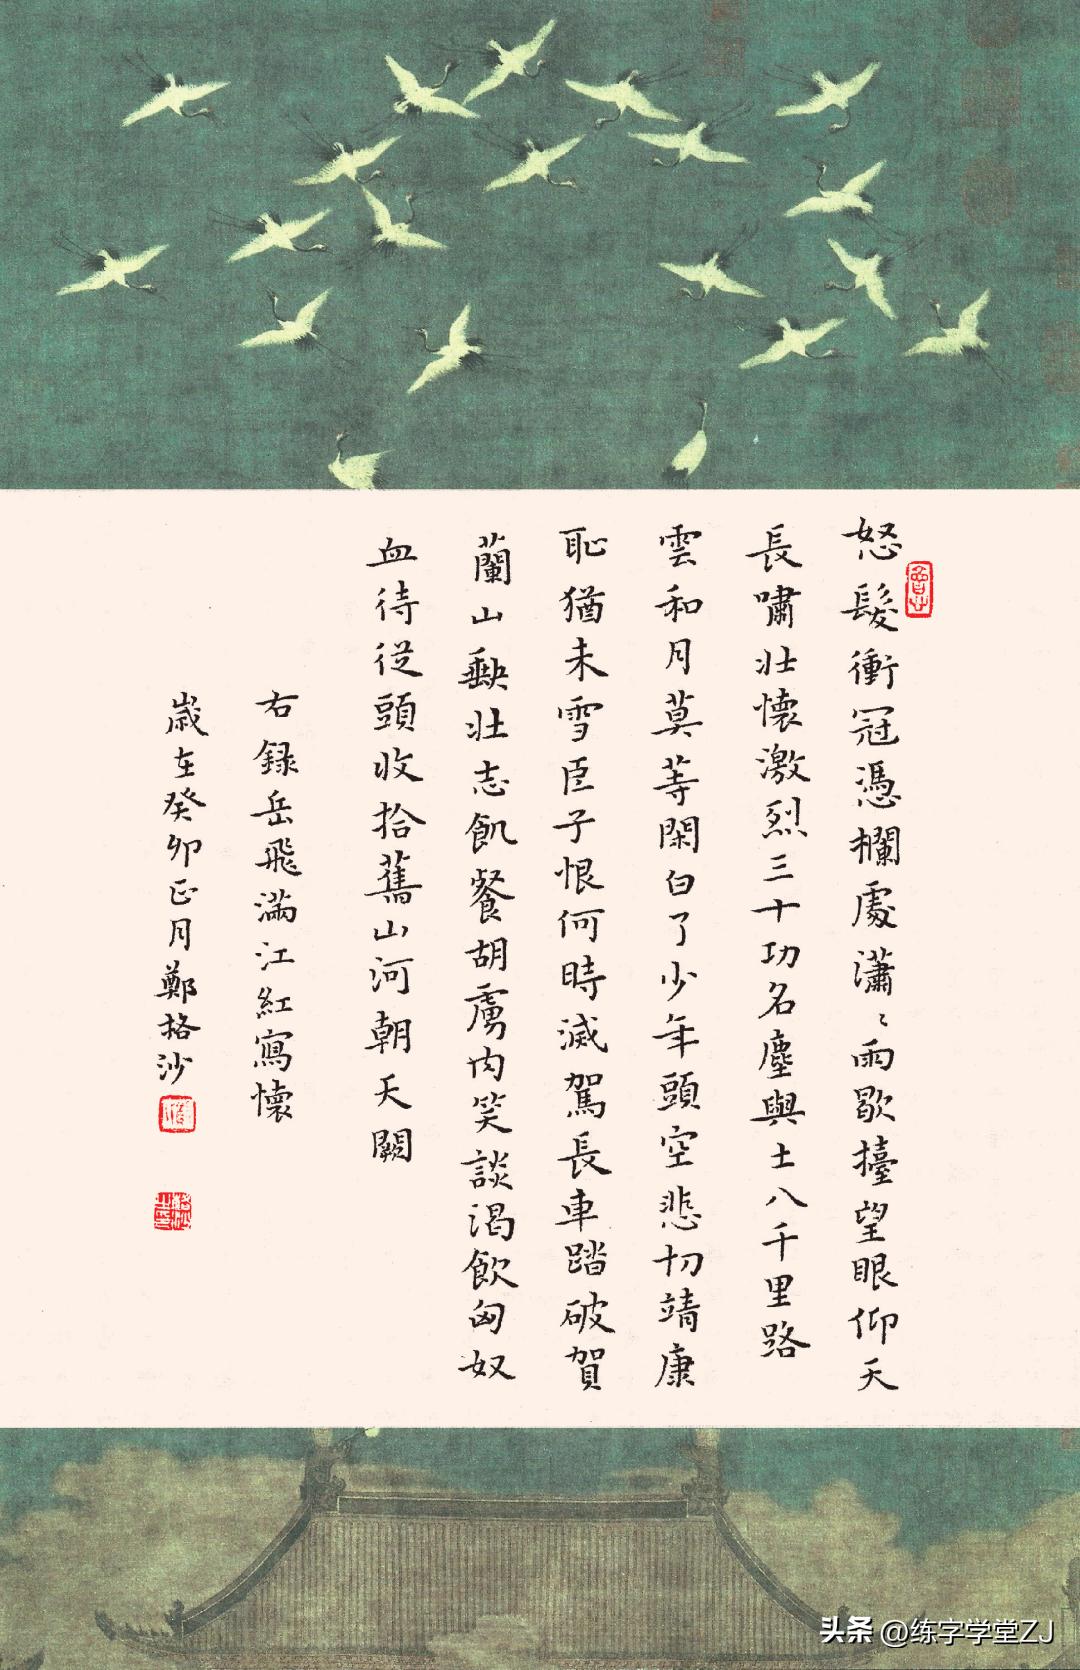 怒髮衝冠憑欄處瀟〻雨歇擡望眼仰天
長嘯壯懷激烈三十功名塵與土八千里路
雲和月莫等閑白了少年頭空悲切靖康
恥猶未雪臣子恨何時滅駕長車踏破賀
蘭山缺壯志飢餐胡虜肉笑談渴飲匈奴
血待從頭收拾舊山河朝天闕
右錄岳飛滿江紅寫懷
歲在癸卯正月鄭格沙
头条 @练字学堂ZJ